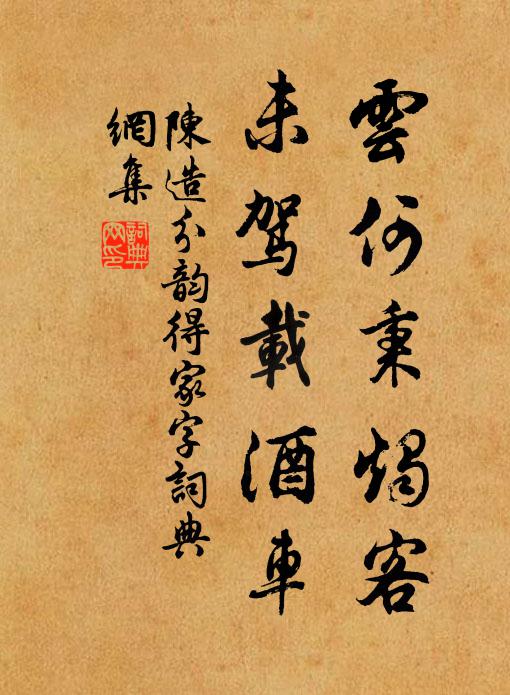 雲何秉燭客
未駕載酒車
陳造分韵得家字詞典
網集
詞典
网印